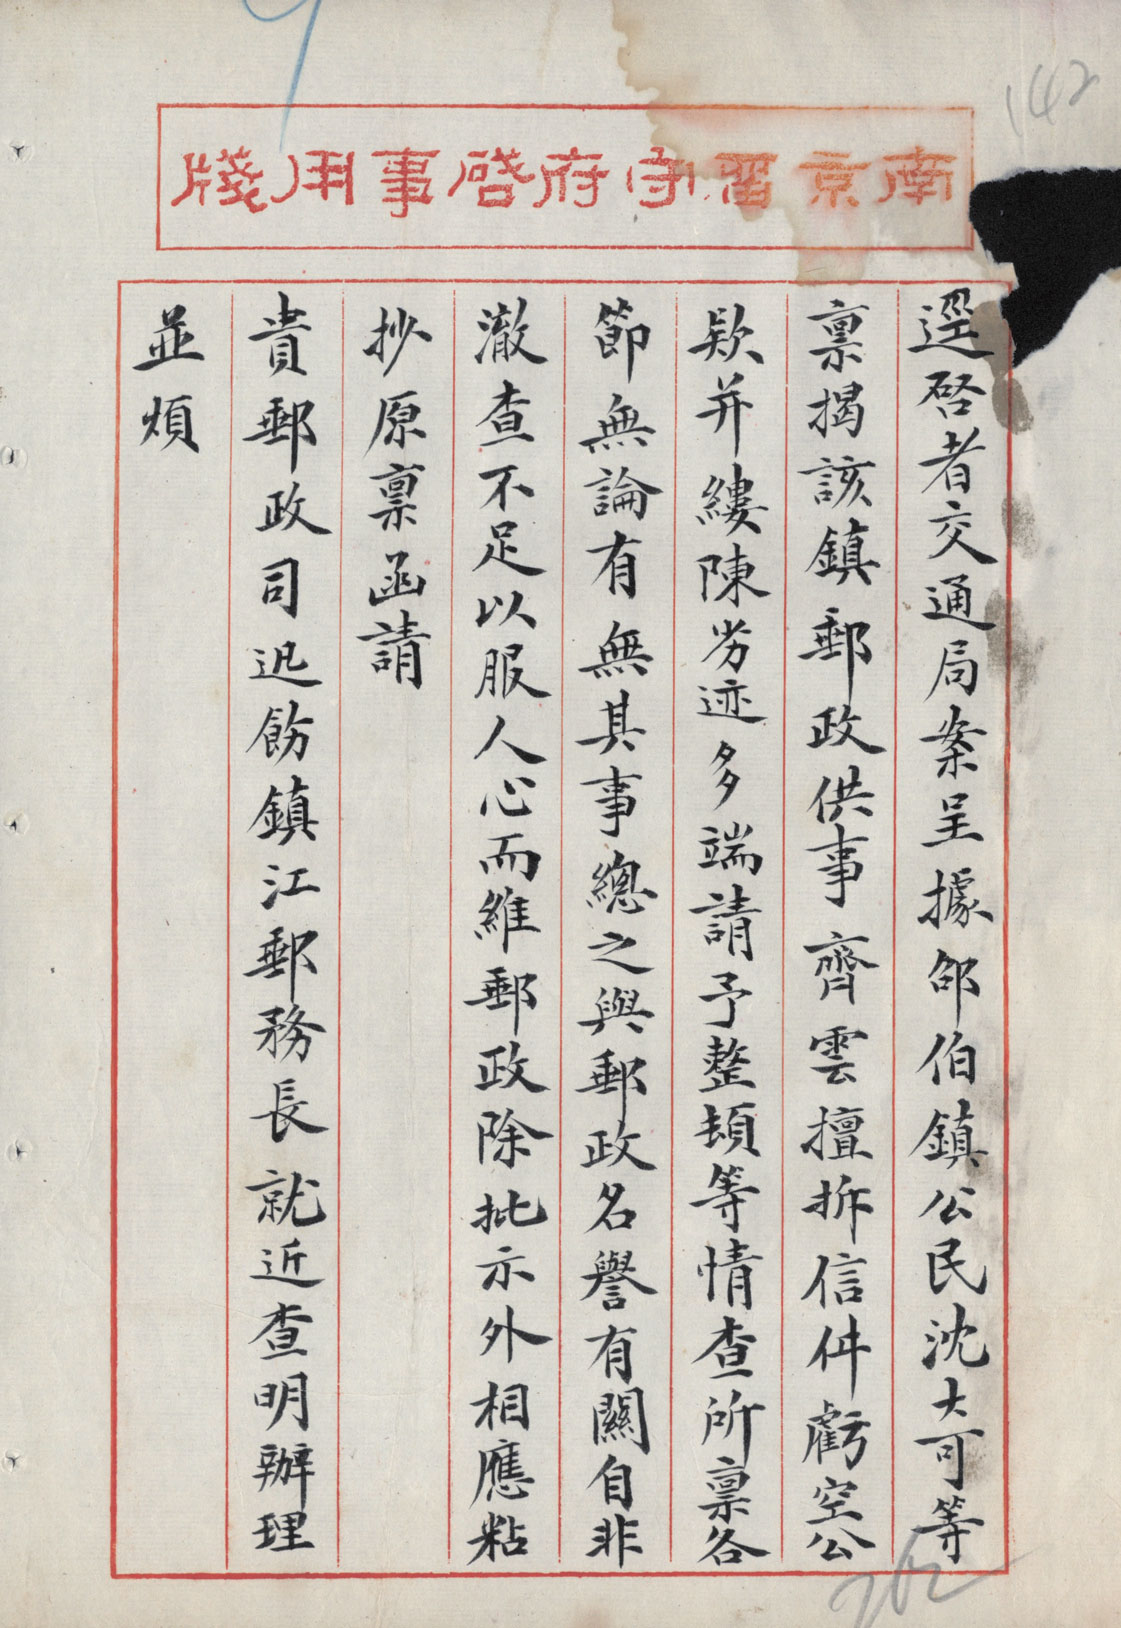 142
南京留守府啓事用牋
逕啓者交通局案呈據邵伯鎮公民沈大可等
禀揭該鎮郵政供事齊雲擅拆信件虧空公
欵并縷陳劣迹多端請予整頓等情查所禀各
節無論有無其事總之與郵政名譽有關自非
澈查不足以服人心而維郵政除批示外相應粘
抄原禀函請
貴郵政司迅飭鎮江郵務長就近查明辦理
並煩
262